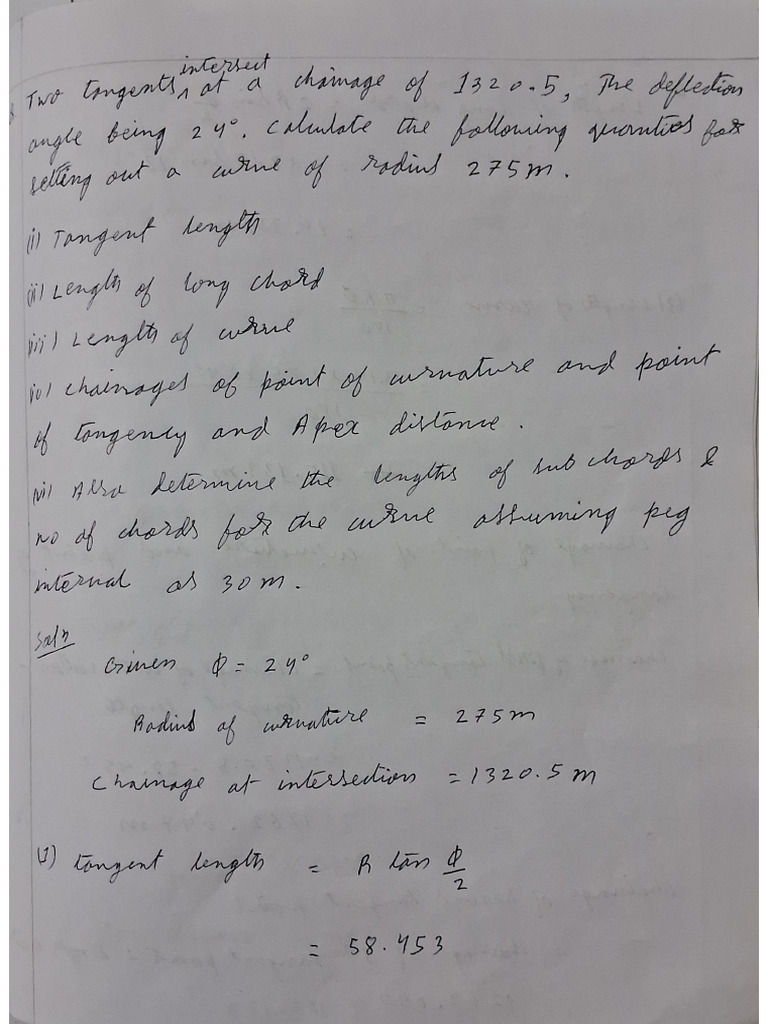 Two tangents intersect at a chainage of 1320.5, The deflection
angle being 24°. Calculate the following quantities for
setting out a curve of radius 275m.
(i) Tangent length
(ii) Length of long chord
(iii) Length of curve
(iv) Chainages of point of curvature and point
of tangency and Apex distance.
(vi) Also determine the lengths of sub chords &
no of chords for the curve assuming peg
interval as 30m.
Soln
Given Φ = 24°
Radius of curvature = 275m
Chainage at intersection = 1320.5m
(I) tangent length = R tan Φ/2
= 58.453